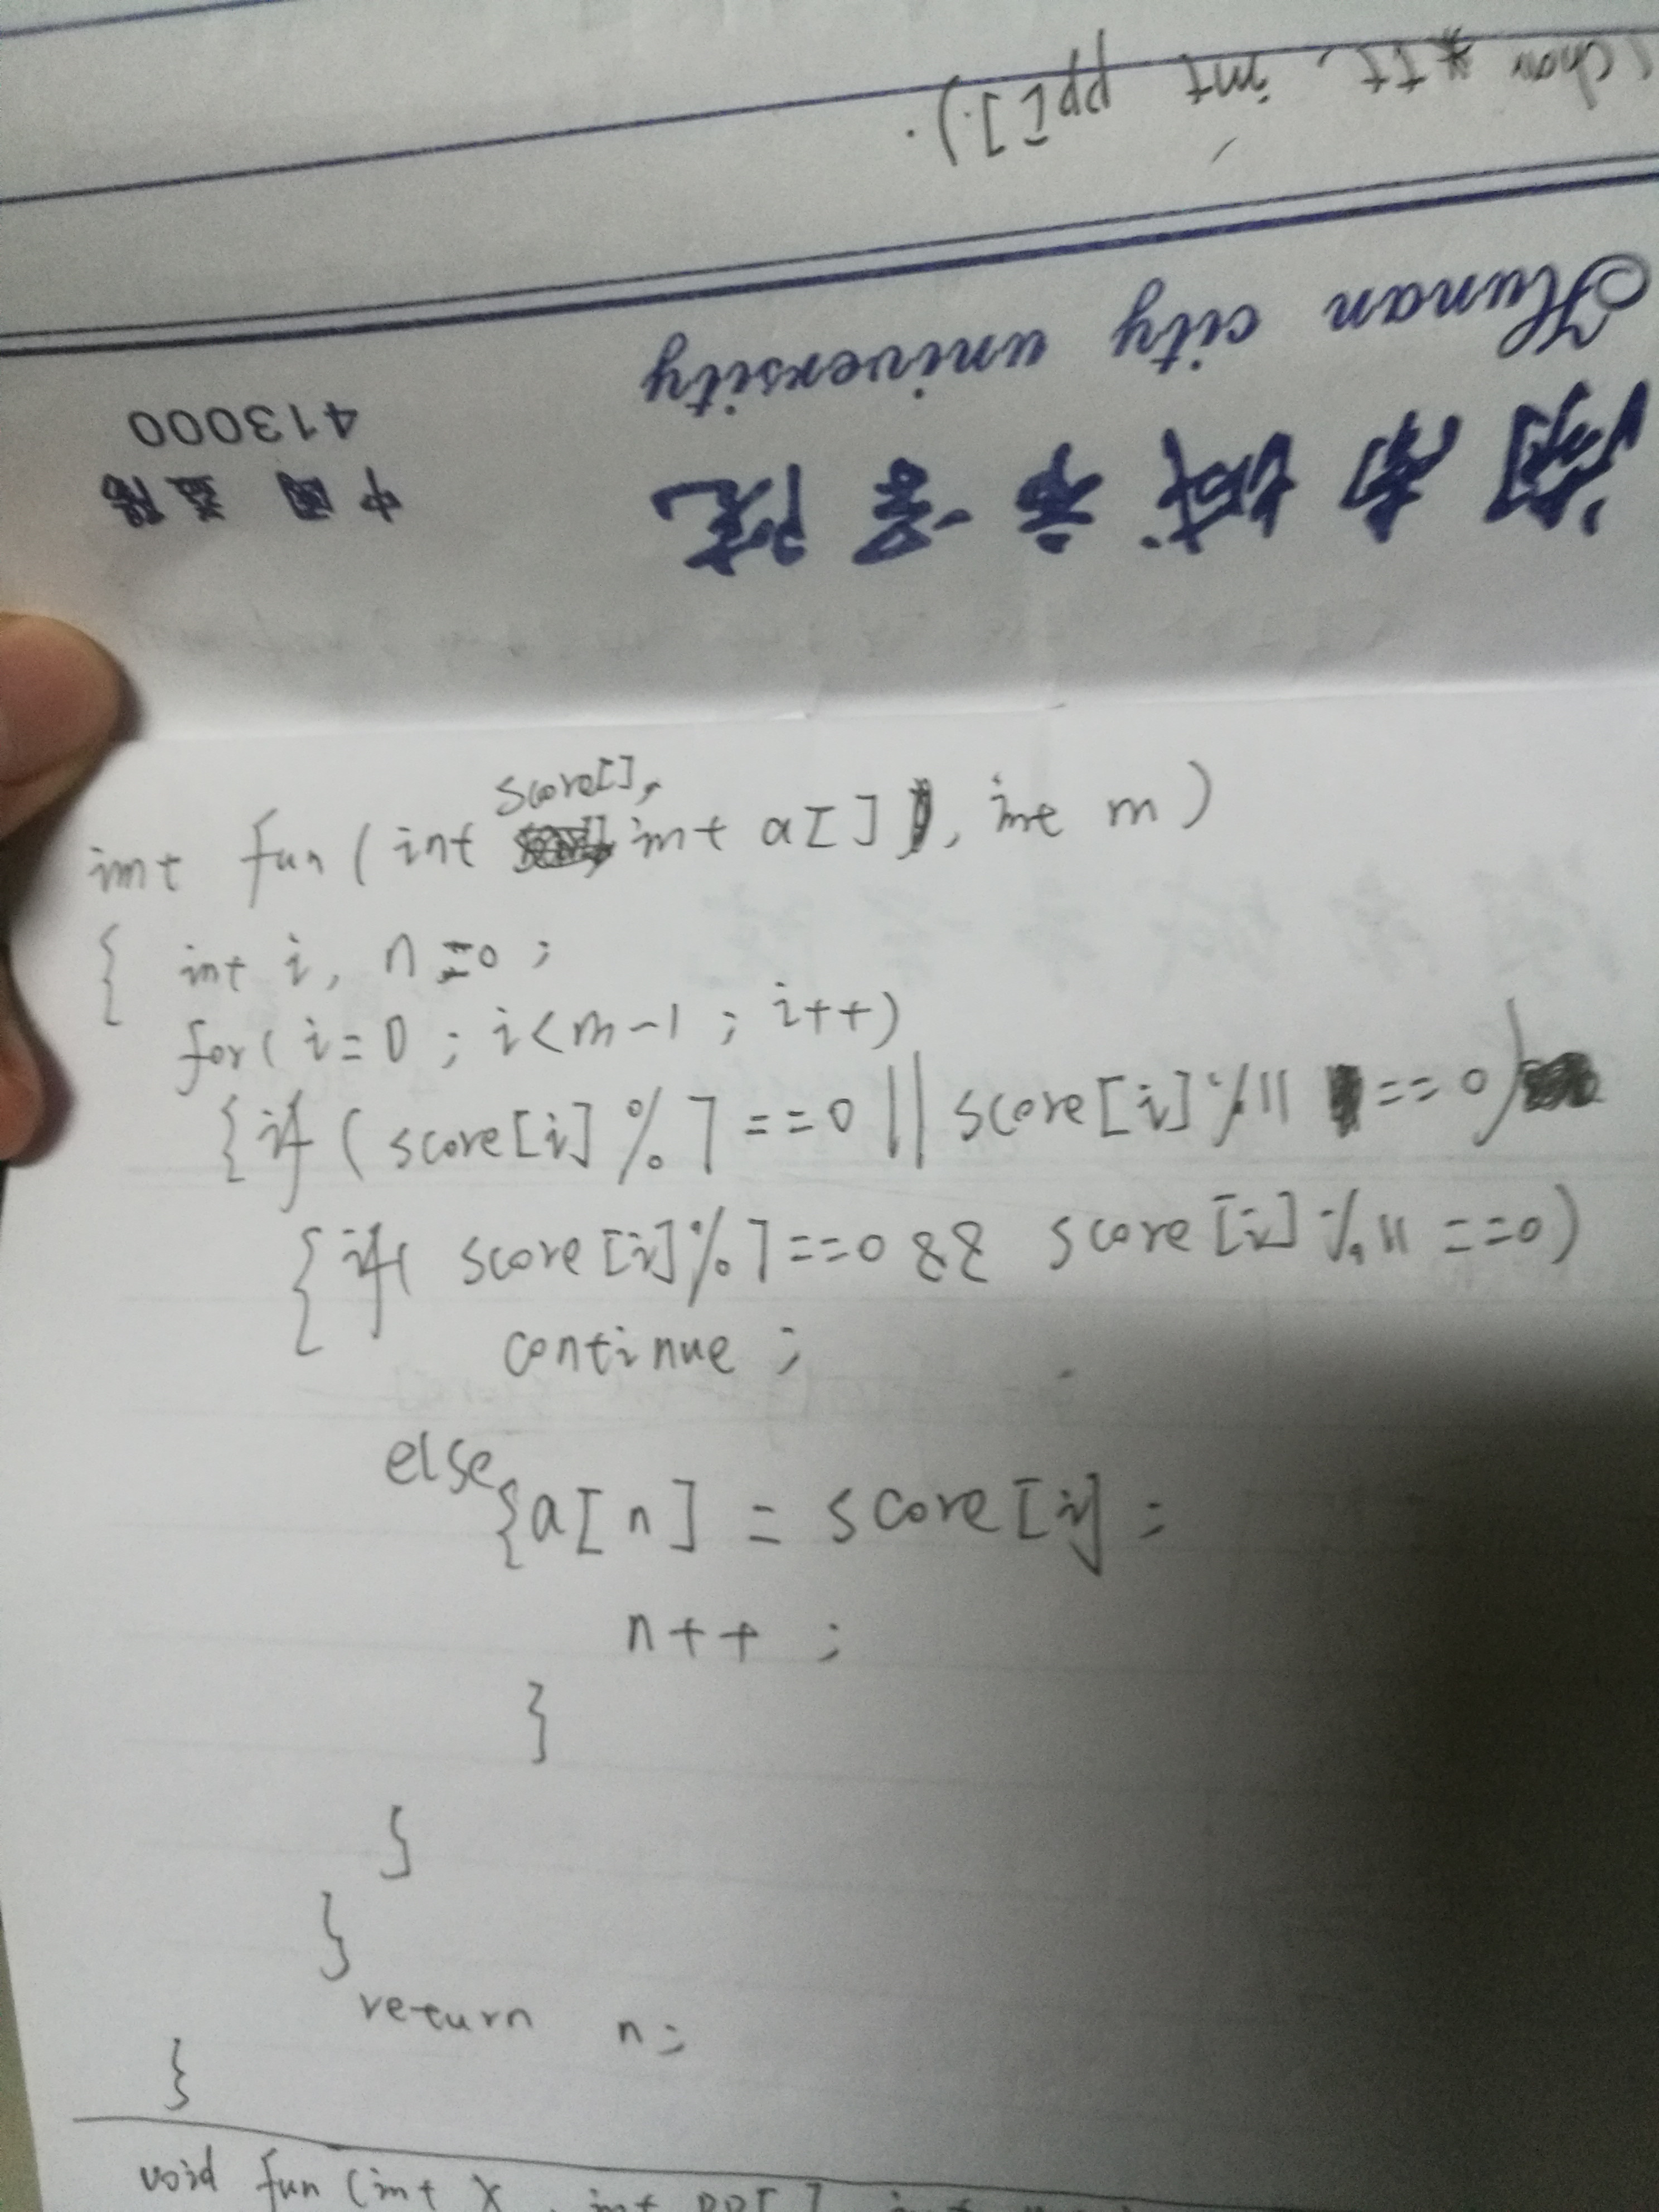 (char *tt, int pp[]).
Hunan city university
湖南城市学院
413000
中国 益阳
int fun(int score[], int a[], int m)
{ int i, n=0;
for(i=0; i<m-1; i++)
{if(score[i]%7==0||score[i]%11==0)
{if(score[i]%7==0&&score[i]%11==0)
continue;
else{a[n]=score[i];
n++;
}
}
}
return n;
}
void fun(int x, int pp[],